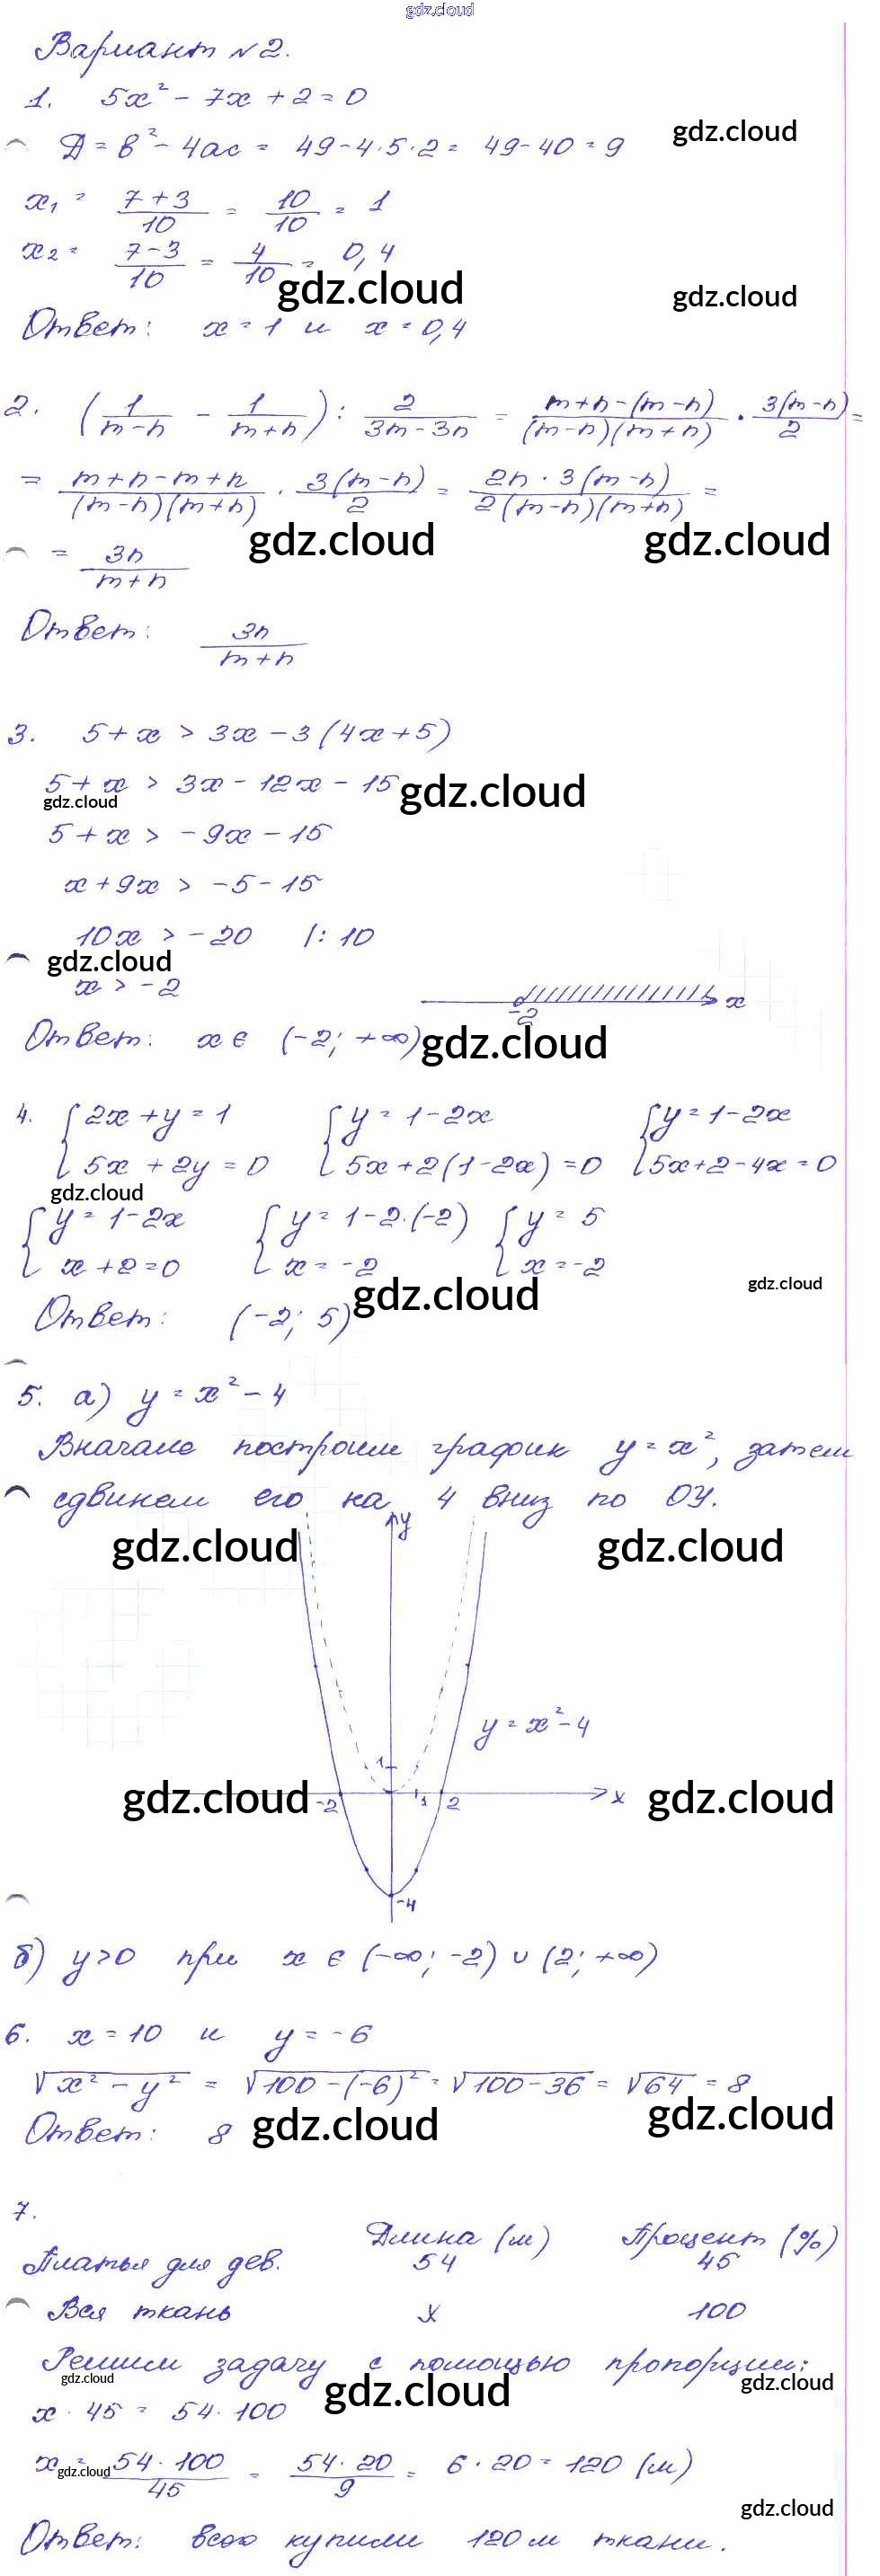 gdz.cloud
Вариант №2.
1. 5x² - 7x + 2 = 0
gdz.cloud
Д = b² - 4ac = 49 - 4·5·2 = 49 - 40 = 9
x₁ = (7+3)/10 = 10/10 = 1
x₂ = (7-3)/10 = 4/10 = 0,4
gdz.cloud gdz.cloud
Ответ: x = 1 и x = 0,4
2. (1/(m-n) - 1/(m+n)) : 2/(3m-3n) = (m+n-(m-n))/((m-n)(m+n)) · 3(m-n)/2 =
= (m+n-m+n)/((m-n)(m+n)) · 3(m-n)/2 = (2n · 3(m-n))/(2(m-n)(m+n)) =
gdz.cloud gdz.cloud
= 3n/(m+n)
Ответ: 3n/(m+n)
3. 5 + x > 3x - 3(4x+5)
5 + x > 3x - 12x - 15
gdz.cloud gdz.cloud
5 + x > -9x - 15
x + 9x > -5 - 15
10x > -20 |: 10
gdz.cloud
x > -2
-2 x
Ответ: x ∈ (-2; +∞)
gdz.cloud
4. {2x + y = 1 {y = 1 - 2x {y = 1 - 2x
{5x + 2y = 0 {5x + 2(1-2x) = 0 {5x + 2 - 4x = 0
gdz.cloud
{y = 1 - 2x {y = 1 - 2·(-2) {y = 5
{x + 2 = 0 {x = -2 {x = -2
gdz.cloud gdz.cloud
Ответ: (-2; 5)
5. а) y = x² - 4
Вначале построим график y = x², затем
сдвинем его на 4 вниз по ОУ.
y
gdz.cloud gdz.cloud
y = x² - 4
1
gdz.cloud -2 1 2 x gdz.cloud
-4
б) y > 0 при x ∈ (-∞; -2) ∪ (2; +∞)
6. x = 10 и y = -6
√(x² - y²) = √(100 - (-6)²) = √(100 - 36) = √64 = 8
gdz.cloud gdz.cloud
Ответ: 8
7.
Длина (м) Процент (%)
Платья для дев. 54 45
Вся ткань x 100
Решим задачу с помощью пропорции:
gdz.cloud gdz.cloud gdz.cloud
x · 45 = 54 · 100
x = (54 · 100)/45 = (54 · 20)/9 = 6 · 20 = 120 (м)
gdz.cloud
gdz.cloud
Ответ: всего купили 120 м ткани.